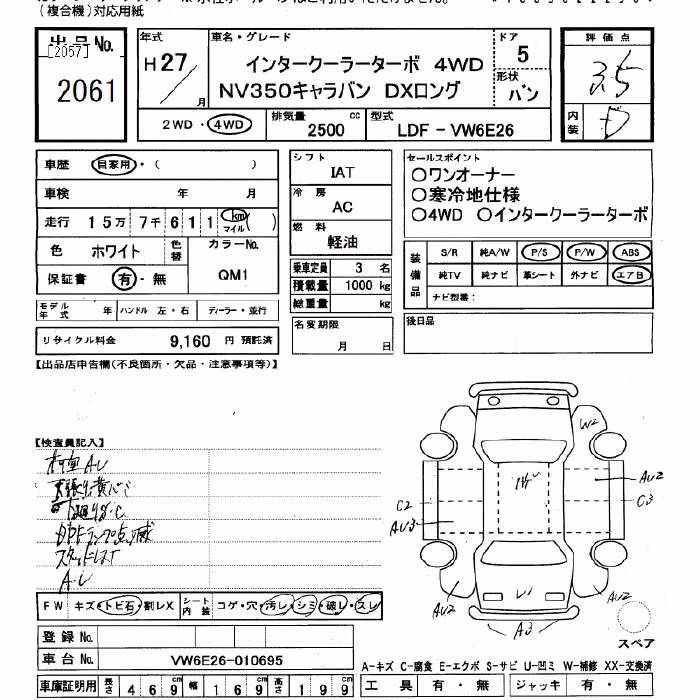 (複合機)対応用紙
出品No.
[2057]
2061
年式
H27/
月
車名・グレード
インタークーラーターボ 4WD
NV350キャラバン DXロング
ドア
5
形状
バン
評価点
3.5
内装
D
2WD・4WD
排気量
cc
2500
型式
LDF-VW6E26
車歴 自家用・( )
車検 年 月
走行 15万 7千 6 1 1 km マイル ( )
色 ホワイト 色替
カラーNo.
QM1
保証書 有・無
モデル年式 年 ハンドル 左・右 ディーラー・並行
リサイクル料金 9,160 円 預託済
シフト
IAT
冷房
AC
燃料
軽油
乗車定員 3 名
積載量 1000 kg
総重量 kg
名変期限
月 日
セールスポイント
○ワンオーナー
○寒冷地仕様
○4WD ○インタークーラーターボ
装備品
S/R 純A/W P/S P/W ABS
純TV 純ナビ 革シート 外ナビ エアB
ナビ型番:
後日品
【出品店申告欄(不良箇所・欠品・注意事項等)】
【検査員記入】
下廻りS・C
DPFランプ点滅
A・U
W2
AU2
C2
C3
AU3
U1
AU2
AU2
A3
スペア
FW キズ・トビ石・割レX シート内装 コゲ・穴・汚レ・シミ・破レ・スレ
登録No.
車台No. VW6E26-010695
車庫証明用 長さ 469cm 幅 169cm 高さ 199cm
A-キズ C-腐食 E-エクボ S-サビ U-凹ミ W-補修 XX-交換済
工具 有・無 ジャッキ 有・無